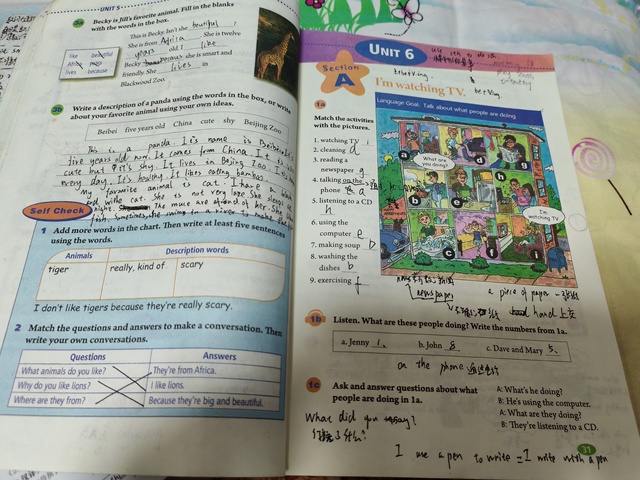 UNIT 5
3a Becky is Jill's favorite animal. Fill in the blanks
with the words in the box.
like beautiful
Africa old
lives because
This is Becky. Isn't she beutiful ?
She is from Africa. She is twelve
years old. I like
Becky because she is smart and
friendly. She lives in
Blackwood Zoo.
3b Write a description of a panda using the words in the box, or write
about your favorite animal using your own ideas.
Beibei five years old China cute shy Beijing Zoo
This is a panda. It's name is Beibei.
five years old now. It comes from China. It is
cute but shy. It lives in Bejing Zoo. I
every day. It's healthy. It likes eating bamboo.
My favourite animal is cat. I have a
and white cat. She is not very large. She sleeps
night. The mice are afraid of her. She
fish. Sometimes she
Self Check
1 Add more words in the chart. Then write at least five sentences
using the words.
Animals Description words
tiger really, kind of scary
I don't like tigers because they're really scary.
2 Match the questions and answers to make a conversation. Then
write your own conversations.
Questions Answers
What animals do you like? They're from Africa.
Why do you like lions? I like lions.
Where are they from? Because they're big and beautiful.
UNIT 6
Section
A
I'm watching TV.
Language Goal: Talk about what people are doing
1a
Match the activities
with the pictures.
1. watching TV i
2. cleaning d
3. reading a
newspaper g
4. talking on the
phone a
5. listening to a CD
h
6. using the
computer e
7. making soup b
8. washing the
dishes b
9. exercising f
What are
you doing?
I'm
watching TV.
newspaper
a piece of paper
hand
1b Listen. What are these people doing? Write the numbers from 1a.
a. Jenny 1. b. John 8 c. Dave and Mary 5.
on the phone
1c Ask and answer questions about what
people are doing in 1a.
A: What's he doing?
B: He's using the computer.
A: What are they doing?
B: They're listening to a CD.
What did you say?
I use a pen to write = I write with a pen
31